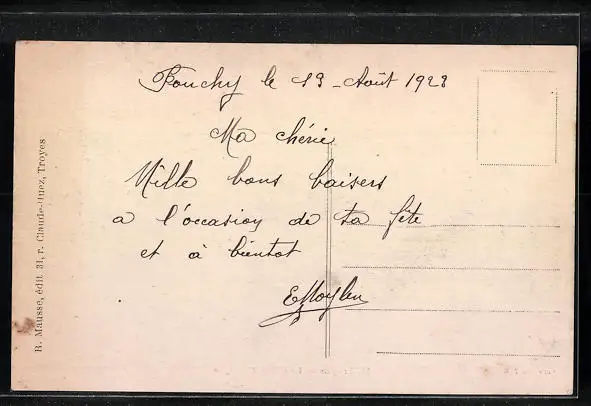 Fouchy le 13 - Août 1928
Ma chérie
Mille bons baisers
a l'occasion de ta fête
et à bientot
R. Mausse, édit. 31, r. Claude-Huez, Troyes